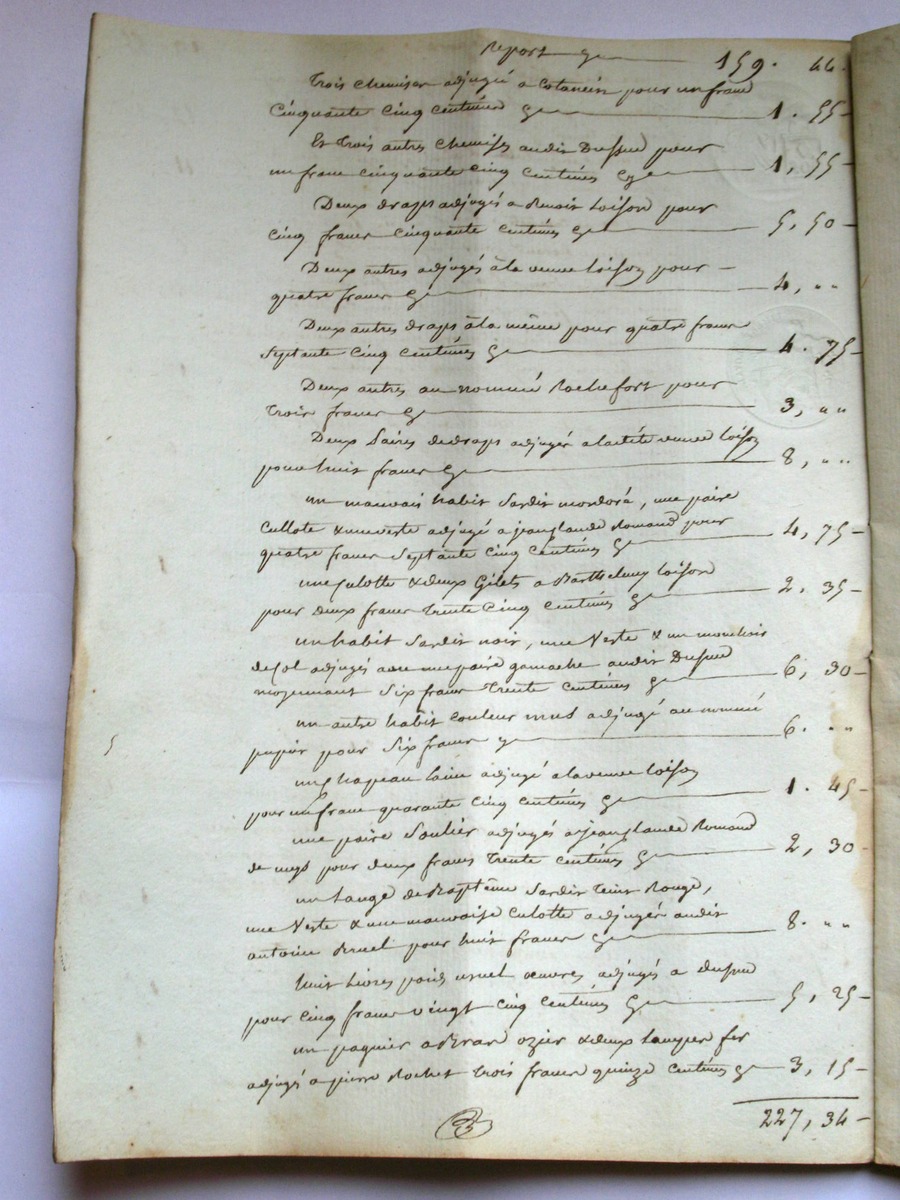 Report 159. 44.
Trois chemises adjugé a pour un franc
Cinquante Cinq centimes 1. 55
Et Trois autres chemises audit Dupué pour
un franc cinquante cinq centimes 1, 55
Deux draps adjugés a Benoit Loison pour
Cinq francs cinquante centimes 5, 50
Deux autres adjugés à la veuve Loison pour
quatre francs 4, " "
Deux autres draps à la même pour quatre francs
septante cinq centimes 4. 75
Deux autres au nommé Rochefort pour
trois francs 3, " "
Deux paires de draps adjugés a la dite veuve Loison
pour huit francs 8, " "
un mauvais habit sardis mordoré, une paire
Cullote & une veste adjugé a jean glaude Romand pour
quatre francs septante cinq centimes 4, 75
une culotte & deux Gilets a Barthelemy Loison
pour deux francs trente cinq centimes 2, 35
un habit sardis noir, une Veste & un mouchoir
de col adjugés avec une paire gamache audit Dupué
moyennant six francs trente centimes 6, 30
un autre habit couleur adjugé au nommé
pour six francs 6. " "
un chapeau laine adjugé a la veuve Loison
pour un franc quarante cinq centimes 1. 45
une paire soulier adjugés a jean glaude Romand
de pour deux francs trente centimes 2, 30
un Lange de Baptême sardis teint Rouge,
une Veste & une mauvaise culotte adjugés audit
antoine pour huit francs 8. " "
huit Livres poids usuel œuvres adjugés a Dupué
pour cinq francs vingt cinq centimes 5, 25
un pagnier a ozier & deux fer
adjugé a pierre Rochet trois francs quinze centimes 3, 15
227, 34